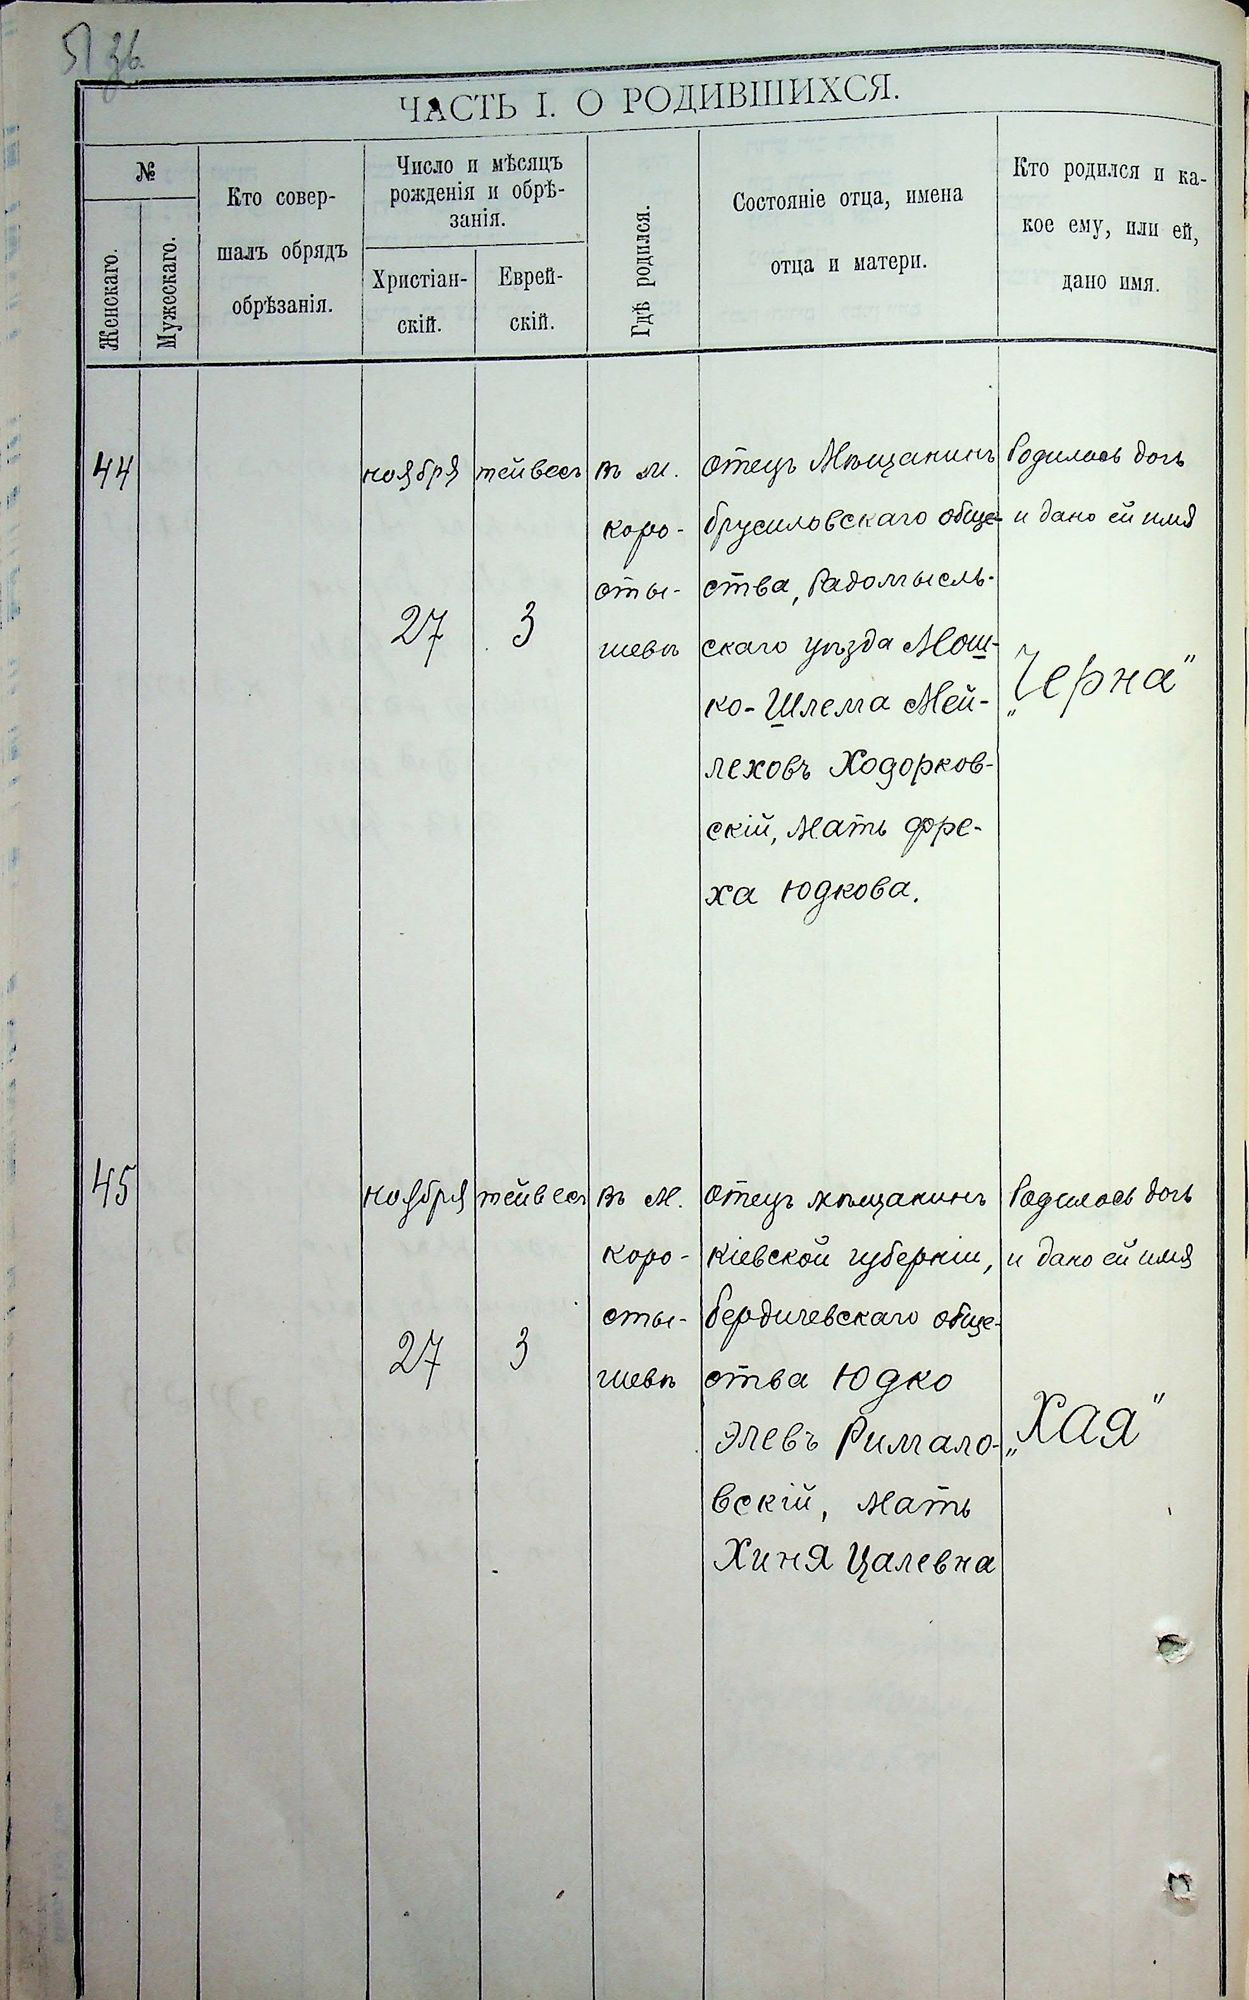 36
ЧАСТЬ I. О РОДИВШИХСЯ.
№
Женскаго.
Мужескаго.
Кто совер-
шалъ обрядъ
обрѣзанія.
Число и мѣсяцъ
рожденія и обрѣ-
занія.
Христіан-
скій.
Еврей-
скій.
Гдѣ родился.
Состояніе отца, имена
отца и матери.
Кто родился и ка-
кое ему, или ей,
дано имя.
44
ноября
27
тейвесъ
3
въ м.
коро-
сты-
шевѣ
отецъ Мѣщанинъ
брусиловскаго обще-
ства, Радомысль-
скаго уѣзда Мош-
ко-Шлема Мей-
леховъ Ходорков-
скій, Мать Фре-
ха Юдкова.
Родилась дочь
и дано ей имя
„Черна"
45
ноября
27
тейвесъ
3
въ м.
коро-
сты-
шевѣ
отецъ мѣщанинъ
кіевской губерніи,
бердичевскаго обще-
ства Юдко
Элевъ Рималo-
вскій, Мать
Хиня Цалевна
Родилась дочь
и дано ей имя
„Хая"